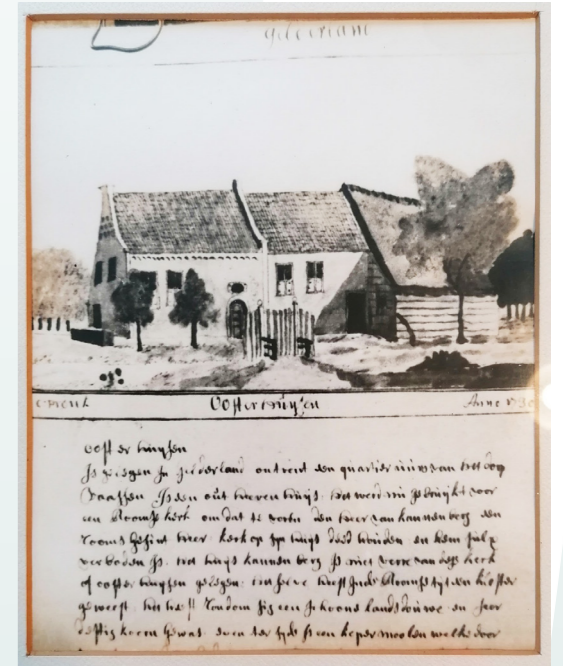 Oosterhuysen
Anno
oosterhuysen
Is gelegen In gelderland ontrent een quartier uurs van het dorp
Vaassen. Is een out heeren huijs. het werd nu gebruijkt voor
een Roomse kerk om dat te voren den heer van kannenberg een
rooms gesint heer kerk op syn huijs deed houden en hem sulx
verboden is. het huijs kannenberg Is niet verre van dese kerk
of oosterhuysen gelegen. het selve heeft Inde Roomse tyt een kloster
geweest. het heeft rondom sig een schoone landsdouwe en seer
deftig koorn gewas. even ter syde is een koper moolen welke door